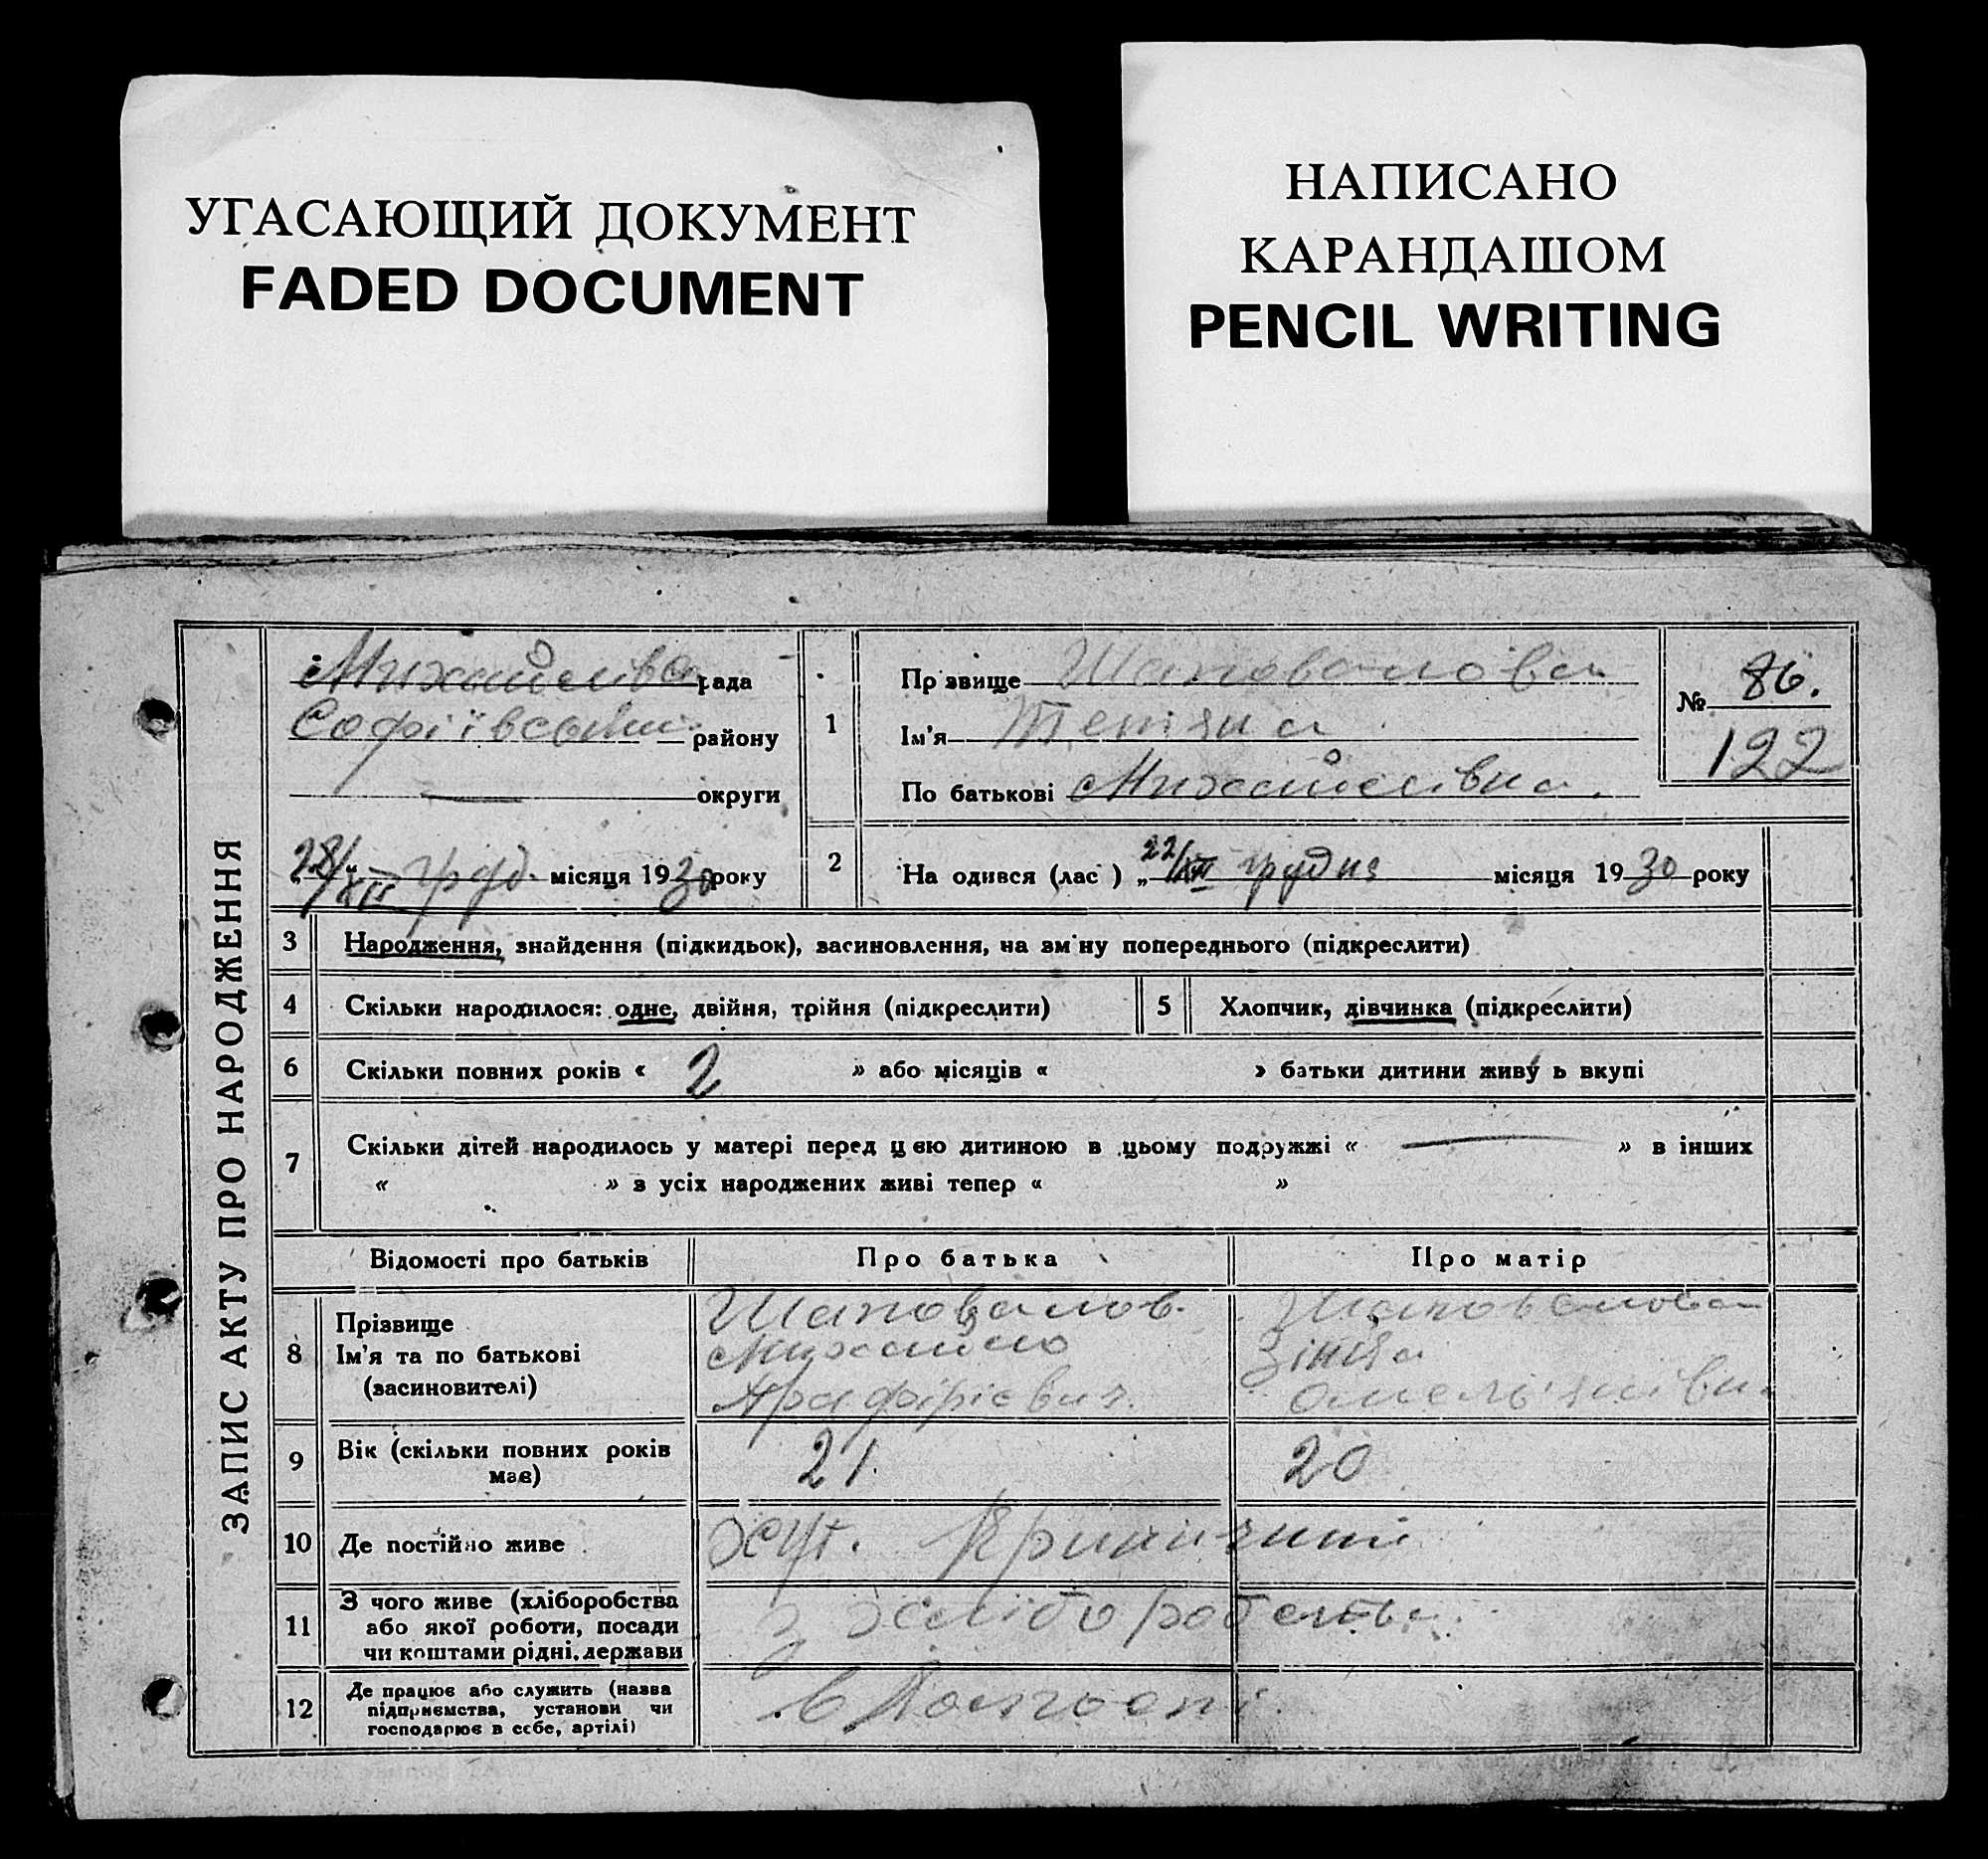 УГАСАЮЩИЙ ДОКУМЕНТ
FADED DOCUMENT
НАПИСАНО
КАРАНДАШОМ
PENCIL WRITING
ЗАПИС АКТУ ПРО НАРОДЖЕННЯ
Михайлівс рада
Софіївський району
— округи
28/XII груд. місяця 1930 року
1
Прізвище Шаповалова
Ім'я Тетяна
По батькові Михайлівна.
№ 86.
122
2 Народився (лась) „22/XII грудня місяця 1930 року
3 Народження, знайдення (підкидьок), засиновлення, на зміну попереднього (підкреслити)
4 Скільки народилося: одне, двійня, трійня (підкреслити) 5 Хлопчик, дівчинка (підкреслити)
6 Скільки повних років « 2 » або місяців « » батьки дитини живуть вкупі
7 Скільки дітей народилось у матері перед цією дитиною в цьому подружжі « — » в інших
« » з усіх народжених живі тепер « »
Відомості про батьків Про батька Про матір
8 Прізвище Шаповалов Шаповалова
Ім'я та по батькові Михайло Зіна
(засиновителі) Омелянівна
9 Вік (скільки повних років має) 21. 20
10 Де постійно живе хут. Кринички
11 З чого живе (хліборобства або якої роботи, посади чи коштами рідні, держави з хліборобства
12 Де працює або служить (назва підприємства, установи чи господарює в себе, артілі) в